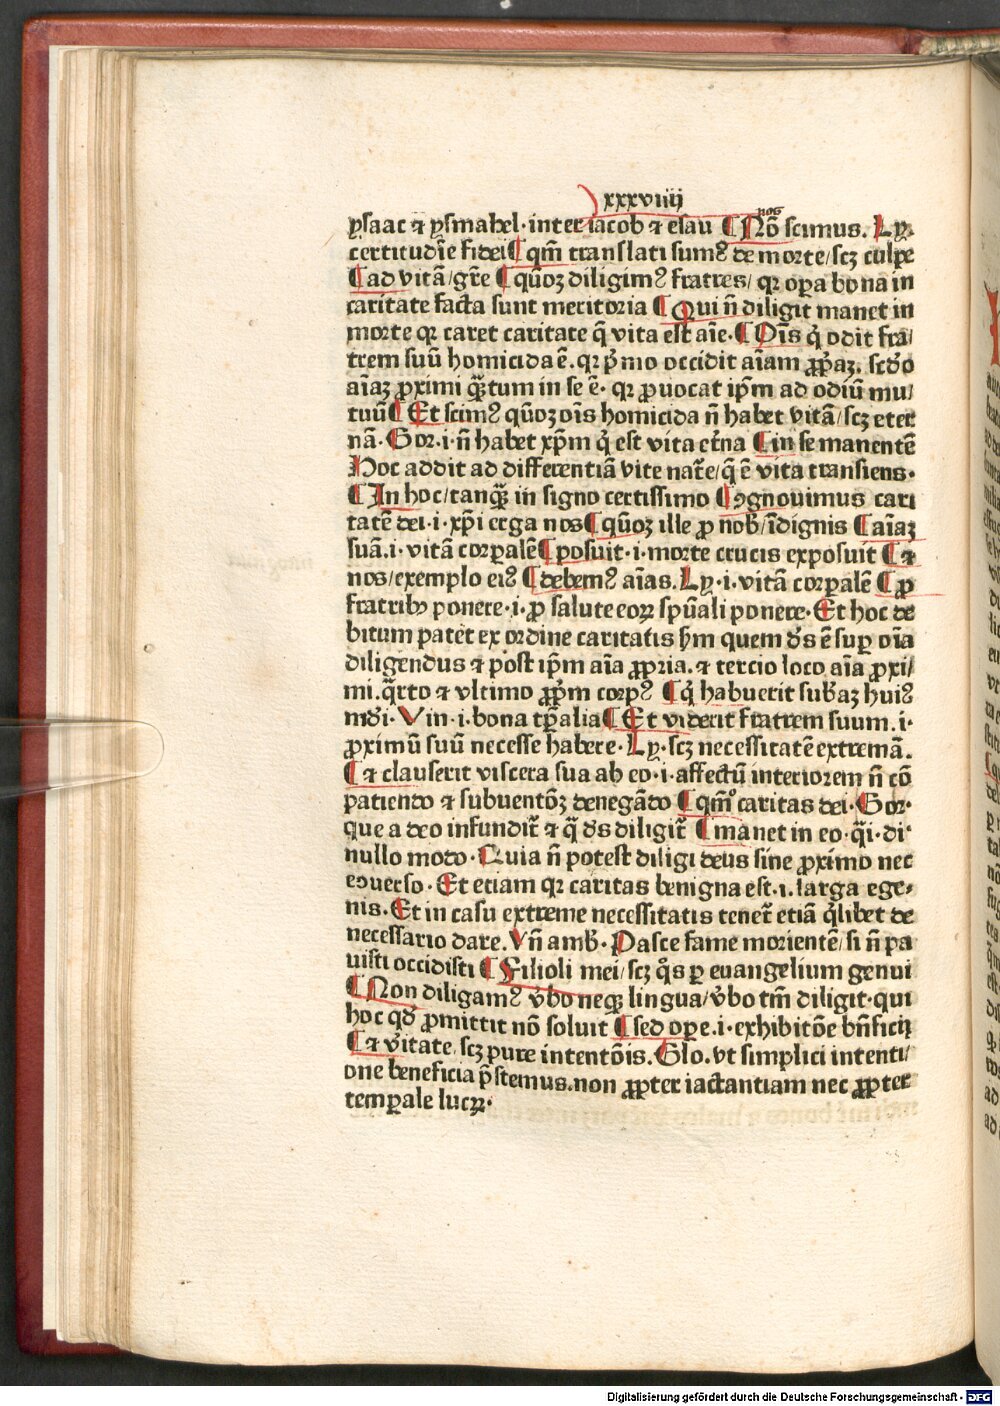 xxxviiij
nos
ysaac ⁊ ysmahel·inter iacob ⁊ esau ¶ Nō scimus. Ly.
certitudīe fidei ¶ qm̄ translati sumꝰ de morte/scꝫ culpe
¶ ad vitā/gr̄e ¶ qūoꝫ diligimꝰ fratres/ qꝛ oꝑa bona in
caritate facta sunt meritoria ¶ Qui n̄ diligit manet in
morte qꝛ caret caritate q̄ vita est aīe·¶ Oīs q̇ odit fra/
trem suū homicida ē. qꝛ ṗmo occidit aīam ꝓpꝛiaꝫ. scd̄o
aīaꝫ ꝓximi q̄ꝫtum in se ē· qꝛ ꝓuocat ip̄m ad odiū mu/
tuū ¶ Et scimꝰ qūoꝫ oīs homicida n̄ habet vitā/scꝫ eter
nā· Gor.i·n̄ habet xp̄m q̇ est vita et̄na ¶ in se manentē
Hoc addit ad differentiā vite nat̄e/q̄ ē vita transiens·
¶ In hoc/tanq̄ꝫ in signo certissimo ¶ ꝯgnouimus cari
tatē dei·i·xp̄i erga nos ¶ qūoꝫ ille ꝓ nob̄/īdignis ¶ aīaꝫ
suā.i·vitā corꝑalē ¶ posuit·i·morte crucis exposuit ¶ ⁊
nos/exemplo eiꝰ ¶ debemꝰ aīas. Ly·i·vitā corꝑalē ¶ ꝓ
fratribꝫ ponere·i·ꝓ salute eoꝝ spūali ponere·Et hoc de
bitum patet ex ordine caritatis ẜm quem dꝰs ē suꝑ oīa
diligendus ⁊ post ip̄m aīa ꝓpria.⁊ tercio loco aīa ꝓxi/
mi.q̄rto ⁊ vltimo ꝓpꝛm corpꝰ ¶ q̇ habuerit subaꝫ huiꝰ
mūdi·Vin·i·bona tꝑalia ¶ Et viderit fratrem suum.i·
ꝓximū suū necesse habere·Ly·scꝫ necessitatē extremā.
¶ ⁊ clauserit viscera sua ab eo·i·affectū interiorem n̄ cō
patiendo ⁊ subuentōꝫ denegādo ¶ qm̄ᵒ caritas dei·Gor·
que a deo infundit̄ ⁊ q̄ dꝰs diligit̄ ¶ manet in eo·q̄si·di·
nullo modo·Quia n̄ potest diligi deus sine ꝓximo nec
eꝯuerso·Et etiam qꝛ caritas benigna est.i.larga ege/
nis.Et in casu extreme necessitatis tenet̄ etiā q̇libet de
necessario dare.Vn̄ amb̄·Pasce fame morientē/si n̄ pa
uisti occidisti ¶ Filioli mei/scꝫ q̊s ꝑ euangelium genui
¶ Non diligamꝰ v̄bo neqꝫ lingua/v̄bo tm̄ diligit·qui
hoc qd̄ ꝓmittit nō soluit ¶ sed oꝑe.i·exhibitōe bn̄ficij
¶ ⁊ v̄itate.scꝫ pure intentōis.Glo.vt simplici intenti/
one beneficia p̄stemus.non ꝓpter iactantiam nec ꝓpter
temꝑale lucꝝ·
Digitalisierung gefördert durch die Deutsche Forschungsgemeinschaft - DFG